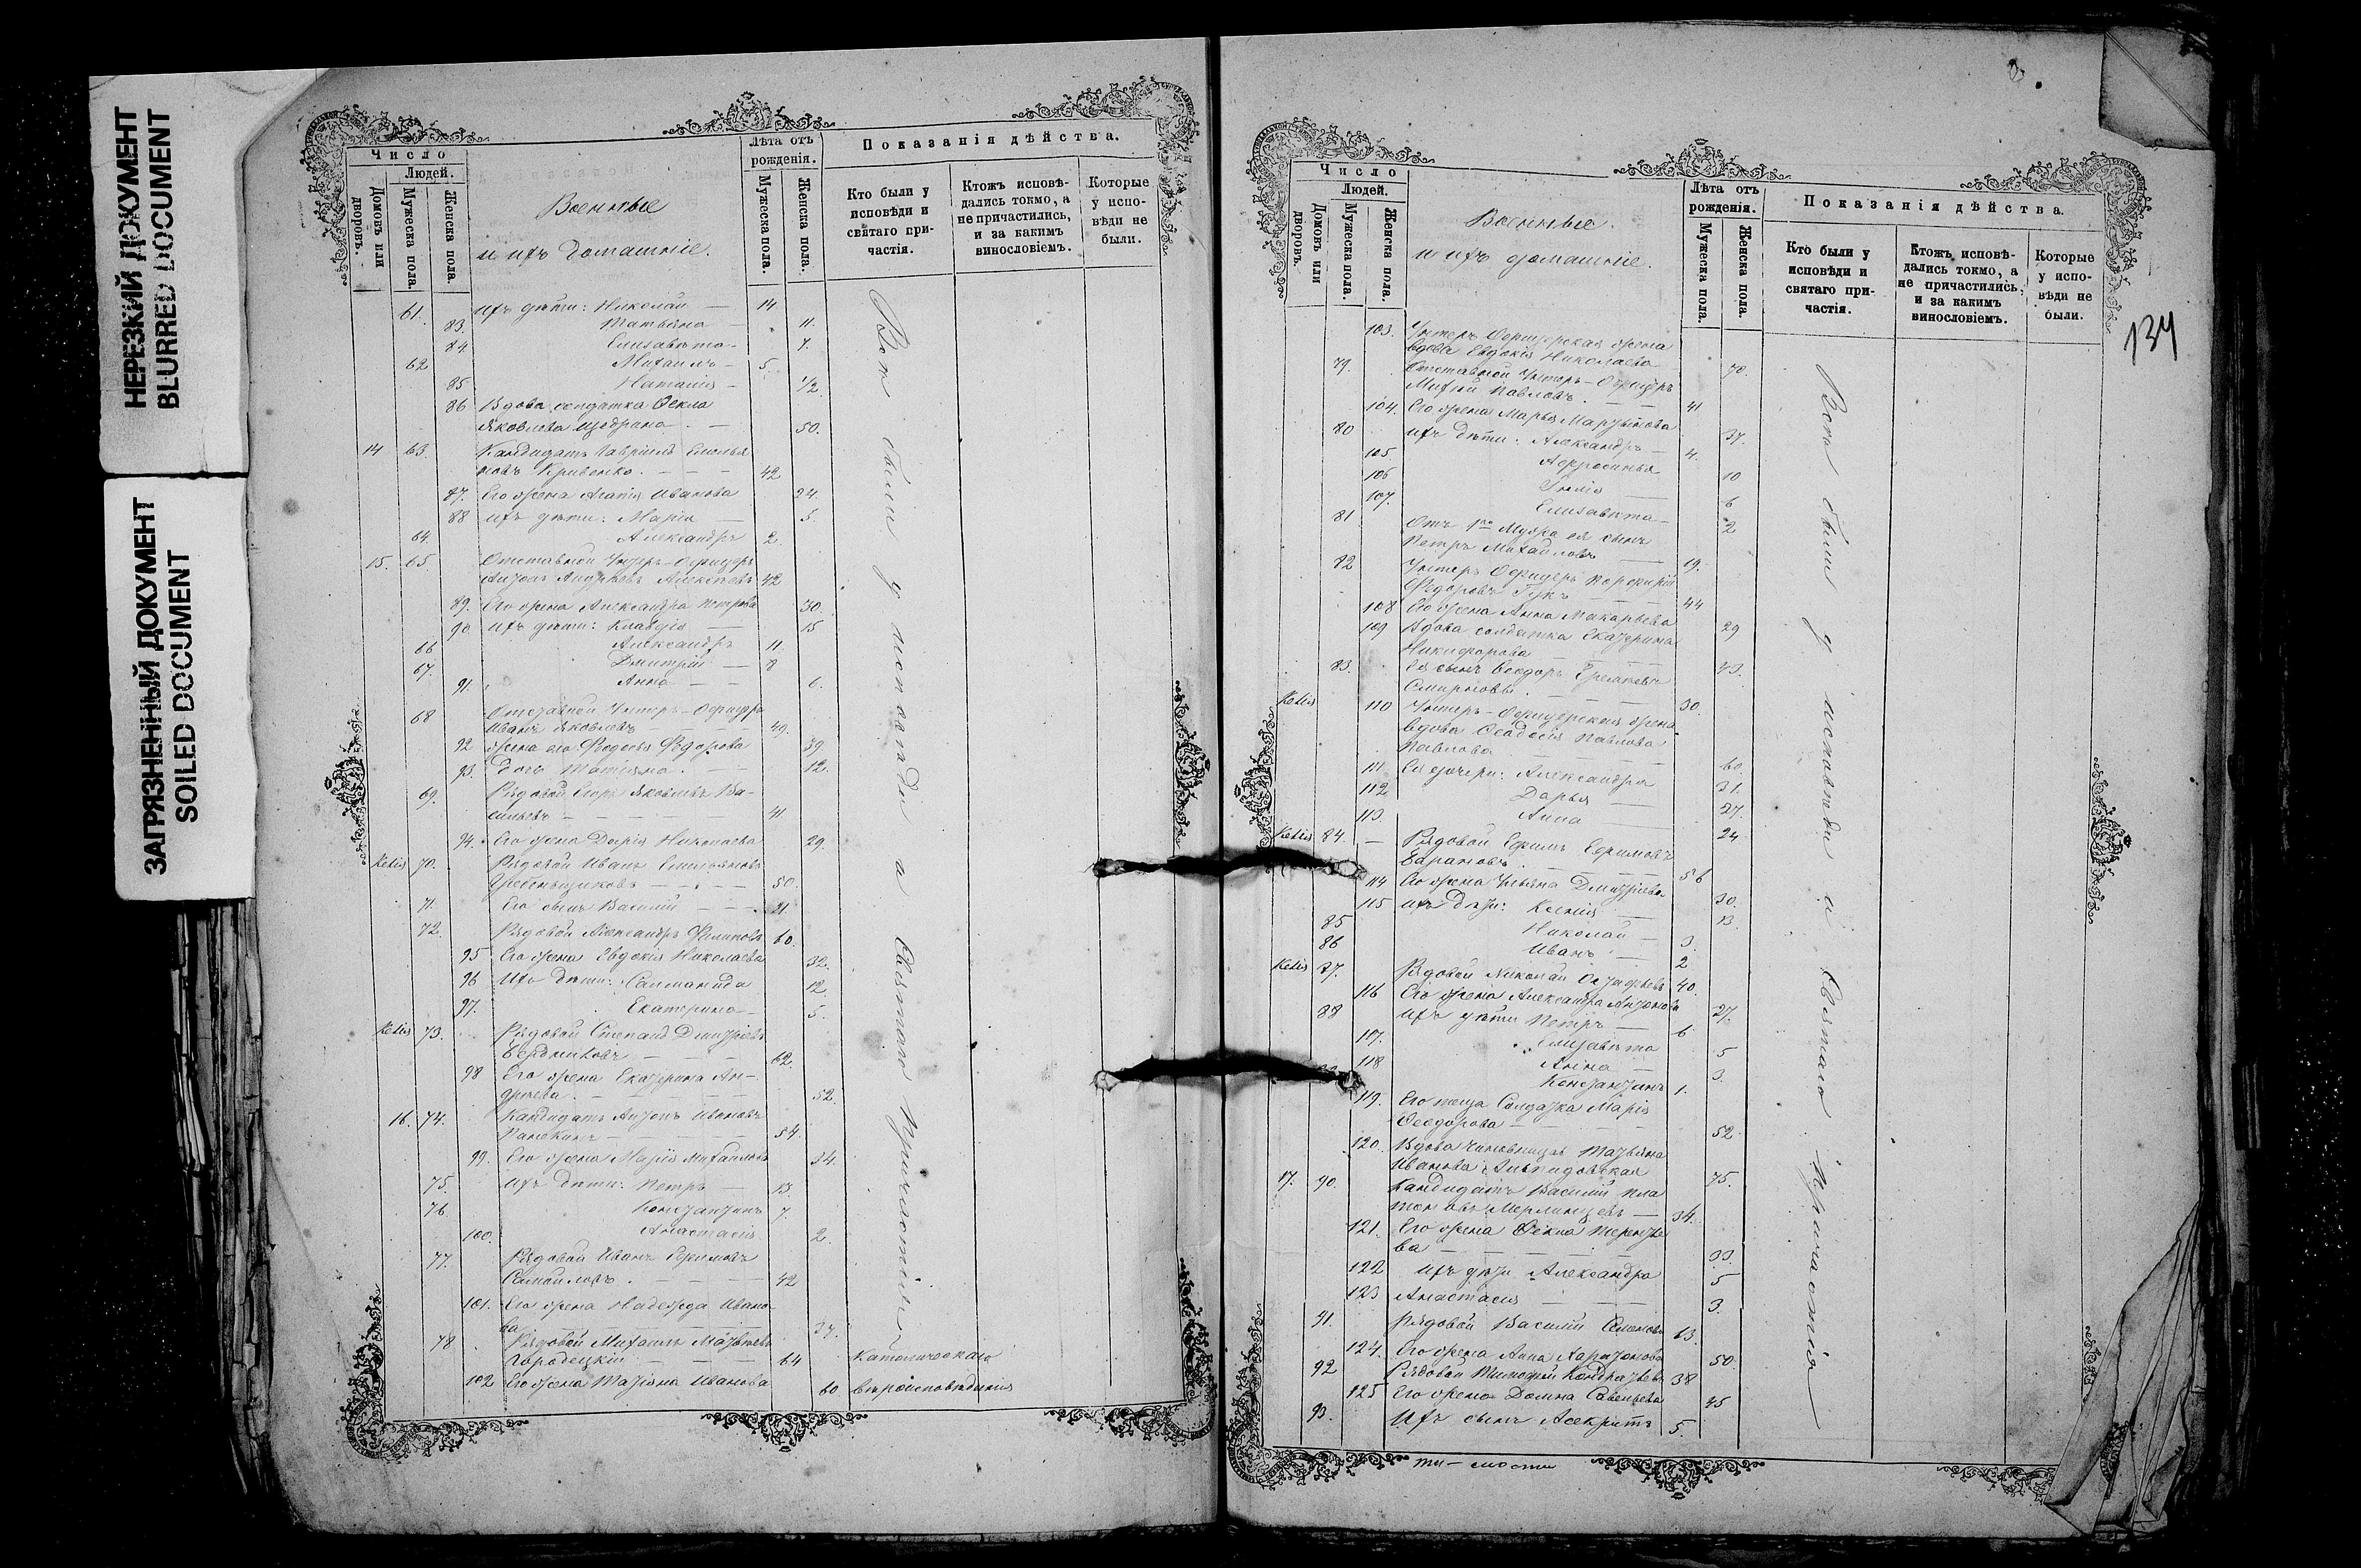 НЕРЕЗКИЙ ДОКУМЕНТ
BLURRED DOCUMENT
ЗАГРЯЗНЕННЫЙ ДОКУМЕНТ
SOILED DOCUMENT
Число
Людей.
Домовъ или дворовъ.
Мужеска пола.
Женска пола.
Военные
и ихъ домашніе.
Лѣта отъ рожденія.
Мужеска пола.
Женска пола.
Показанія дѣйства.
Кто были у исповѣди и святаго причастія.
Ктожъ исповѣдались токмо, а не причастились, и за какимъ винословіемъ.
Которые у исповѣди не были.
61. ихъ дѣти: Николай — 14
83. Татьяна — 11.
84. Елисавета — 7.
62 Михаилъ — 5.
85 Наталія — 1/2
86 Вдова солдатка Ѳекла
Яковлева Щедрина — 50.
14 63. Кандидатъ Гавріилъ Емелья
новъ Кривенко — 42
87. Его жена Агапія Иванова 24.
88 ихъ дѣти: Марія — 5.
64. Александръ 2.
15. 65. Отставной Унтеръ-Офицеръ
Антонъ Андреевъ Алексѣевъ 42
89. Его жена Александра Петрова 30.
90. ихъ дѣти: Клавдія — 15
66 Александръ 11.
67. Дмитрій — 8
91. Анна — 6.
68 Отставной Унтеръ-Офицеръ
Иванъ Яковлевъ — 49.
92 жена его Федосья Федорова 39.
93. дочь Татіана — 12.
69. Рядовой Егоръ Яковлевъ Ва-
сильевъ — 41
94. Его жена Дарія Николаева 29.
Келія 70. Рядовой Иванъ Емельяновъ
Гребенщиковъ — 50.
71. Его сынъ Василій — 21.
72. Рядовой Александръ Филиповъ 60.
95 Его жена Евдокія Николаева 32.
96 Ихъ дѣти: Саламанида 12.
97. Екатерина — 5.
Келія 73. Рядовой Степанъ Дмитріевъ
Бердниковъ — 62.
98 Его жена Екатерина Ан-
дреева — 52.
16. 74. Кандидатъ Антонъ Ивановъ
Панекинъ — 54.
99. Его жена Марія Михайлова 34.
75. ихъ дѣти: Петръ — 13.
76 Константинъ 7.
100. Анастасія 2.
77. Рядовой Иванъ Ефимовъ
Самойловъ — 42
101. Его жена Надежда Ивано-
ва — 37.
78 Рядовой Михаилъ Матвѣевъ
Городецкій — 64 Католическаго
102 Его жена Татіана Иванова 60 вѣроисповѣданія
Всѣ были у исповѣди и Святаго Причастія
134
Число
Людей.
Домовъ или дворовъ.
Мужеска пола.
Женска пола.
Военные.
и ихъ домашніе.
Лѣта отъ рожденія.
Мужеска пола.
Женска пола.
Показанія дѣйства.
Кто были у исповѣди и святаго причастія.
Ктожъ исповѣдались токмо, а не причастились, и за какимъ винословіемъ.
Которые у исповѣди не были.
103. Унтеръ Офицерская жена
вдова Евдокія Николаева 70.
79. Отставной Унтеръ-Офицеръ
Михей Павловъ — 41
104. Его жена Марья Мартынова 37.
80 ихъ дѣти: Александръ — 4.
105. Афросинья 10
106 Юлія — 6
107. Елизавета — 2
81 Отъ 1го Мужа ея сынъ
Петръ Михайловъ — 19.
82 Унтеръ Офицеръ Порфирій
Федоровъ Гукъ — 44
108 Его жена Анна Макарьева 29
109 Вдова солдатка Екатерина
Никифорова — 43.
83. Ея сынъ Ѳеодоръ Еремѣевъ
Смирновъ — 30.
Келія 110 Унтеръ-Офицерская жена
вдова Ѳеодосія Павлова
Павлова — 60.
111 Ея дочери: Александра 31.
112 Дарья — 27.
113. Анна — 24
Келія 84. Рядовой Ефимъ Ефимовъ
Барановъ — 56
114 Его жена Ульяна Дмитріева 30.
115 ихъ дѣти: Ксенія — 13
85 Николай — 3.
86 Иванъ — 2
Келія 87. Рядовой Николай 40.
116 Его жена Александра Антонова 27.
88 ихъ дѣти Петръ — 6
117. Елизавета 5
118 Анна — 3.
Константинъ 1.
119. Его теща Солдатка Марія
Ѳеодорова — 52
120. Вдова чиновница Татьяна
Иванова 75.
17. 90. Кандидатъ Василій Пла
тоновъ — 34.
121. Его жена Ѳекла Терентье
ва — 33.
122 ихъ дѣти Александра 5
123 Анастасія — 3.
91. Рядовой Василій Семеновъ 63.
124. Его жена Анна Харитонова 50.
92 Рядовой Тимофей Кондратьевъ 38
125 Его жена Домна Савельева 45
93. Ихъ сынъ Асекритъ 5.
Всѣ были у исповѣди и Святаго Причастія